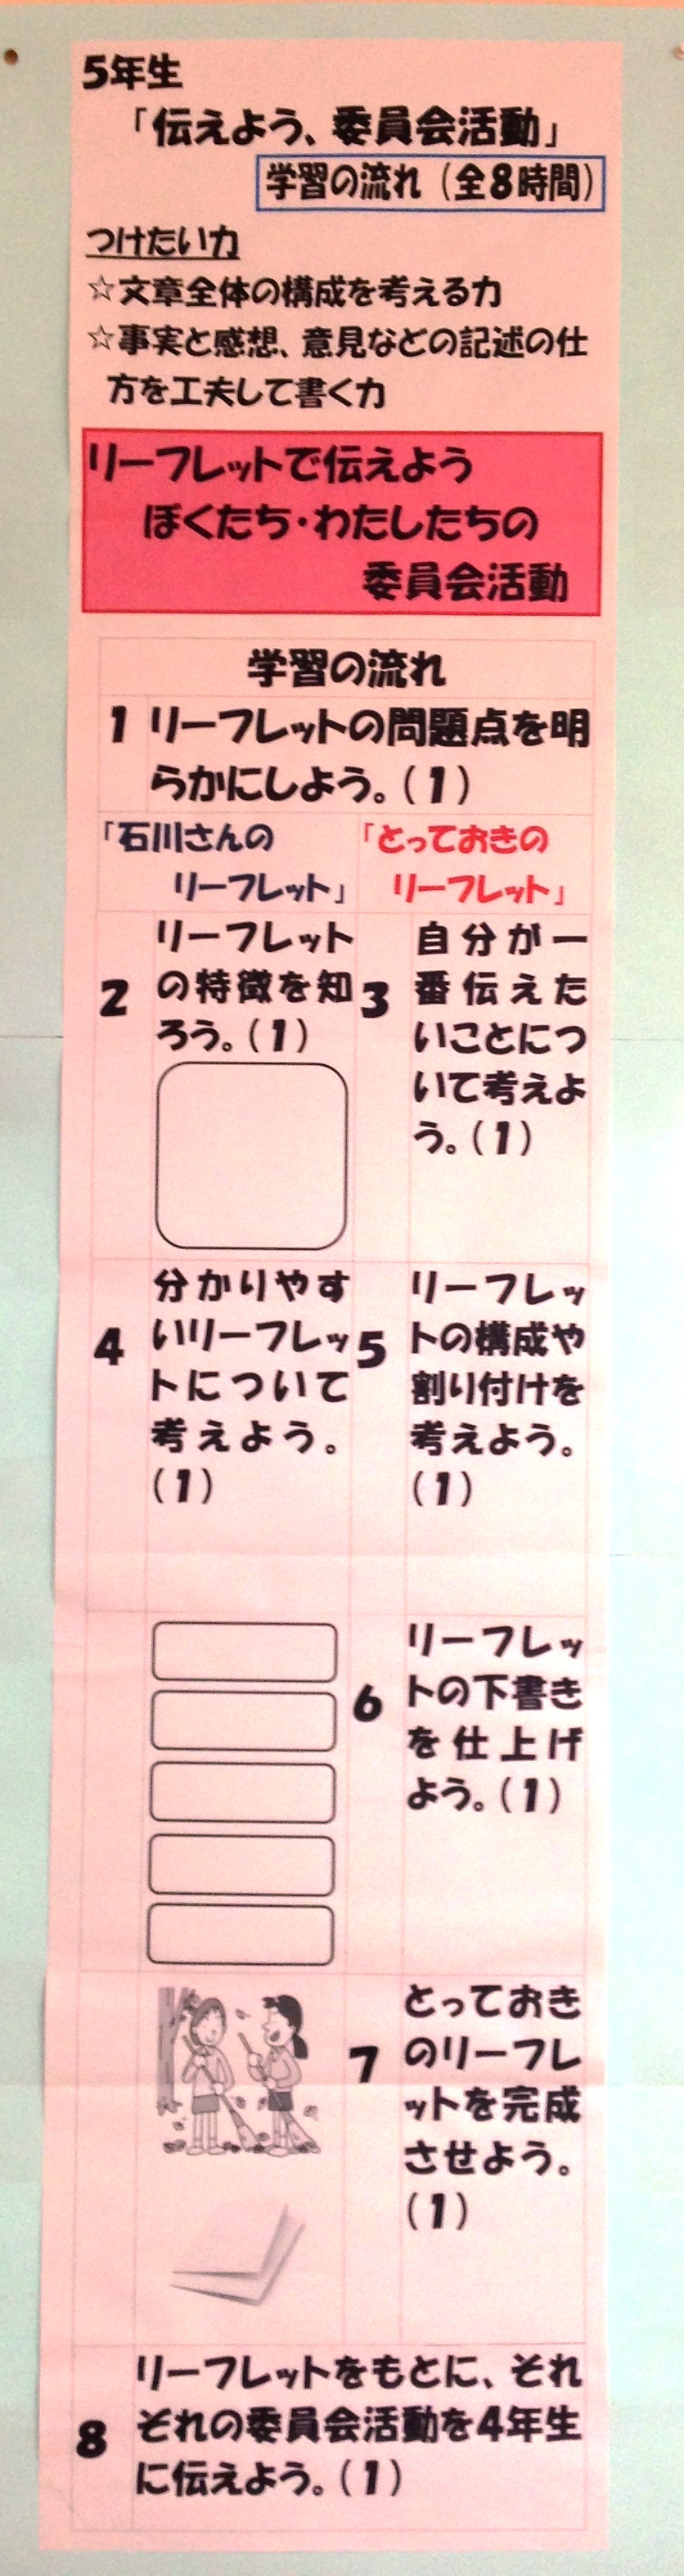 5年生
「伝えよう、委員会活動」
学習の流れ（全8時間）
つけたい力
☆文章全体の構成を考える力
☆事実と感想、意見などの記述の仕
方を工夫して書く力
リーフレットで伝えよう
ぼくたち・わたしたちの
委員会活動
学習の流れ
1 リーフレットの問題点を明
らかにしよう。（1）
「石川さんの
リーフレット」
「とっておきの
リーフレット」
2
リーフレット
の特徴を知
ろう。（1）
3
自分が一
番伝えた
いことにつ
いて考えよ
う。（1）
4
分かりやす
いリーフレッ
トについて
考えよう。
（1）
5
リーフレッ
トの構成や
割り付けを
考えよう。
（1）
6
リーフレッ
トの下書き
を仕上げ
よう。（1）
7
とっておき
のリーフレ
ットを完成
させよう。
（1）
8
リーフレットをもとに、それ
ぞれの委員会活動を4年生
に伝えよう。（1）